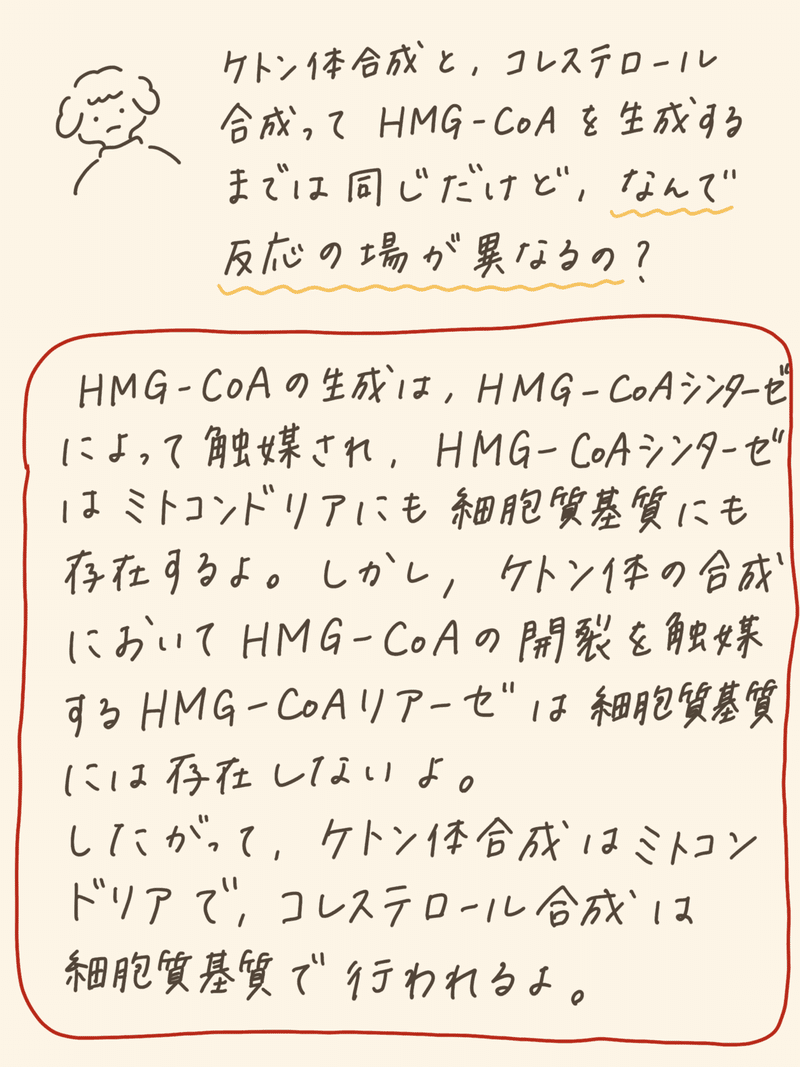 ケトン体合成と,コレステロール
合成って HMG-CoA を生成する
までは同じだけど,なんで
反応の場が異なるの?
HMG-CoAの生成は,HMG-CoAシンターゼ
によって触媒され,HMG-CoAシンターゼ
はミトコンドリアにも細胞質基質にも
存在するよ。しかし,ケトン体の合成
においてHMG-CoAの開裂を触媒
するHMG-CoAリアーゼは細胞質基質
には存在しないよ。
したがって,ケトン体合成はミトコン
ドリアで,コレステロール合成は
細胞質基質で行われるよ。